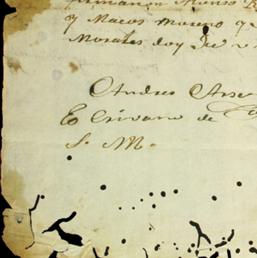 y Marcos Moreno q
Morales doy fee
Andres Arse
Escrivano de
S. M.